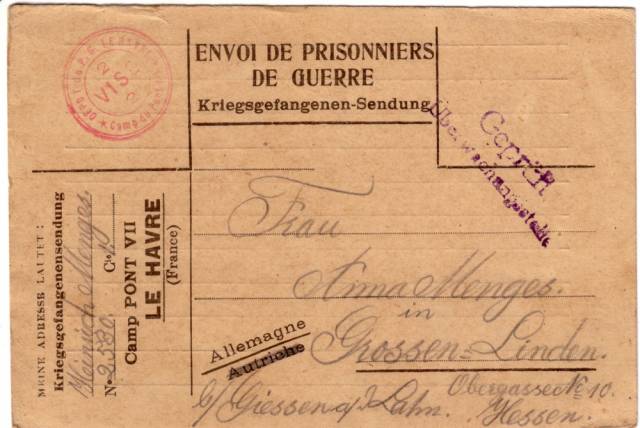 ENVOI DE PRISONNIERS
DE GUERRE
Kriegsgefangenen-Sendung
VISÉ
Geprüft
Überwachungsstelle
MEINE ADRESSE LAUTET:
Kriegsgefangenensendung
Heinrich Menges.
No 2580. Cie
Camp PONT VII
LE HAVRE
(France)
Frau
Anna Menges.
in
Allemagne
Autriche
Grossen-Linden.
Obergasse No 10.
b/ Giessen a/d Lahn. Hessen.